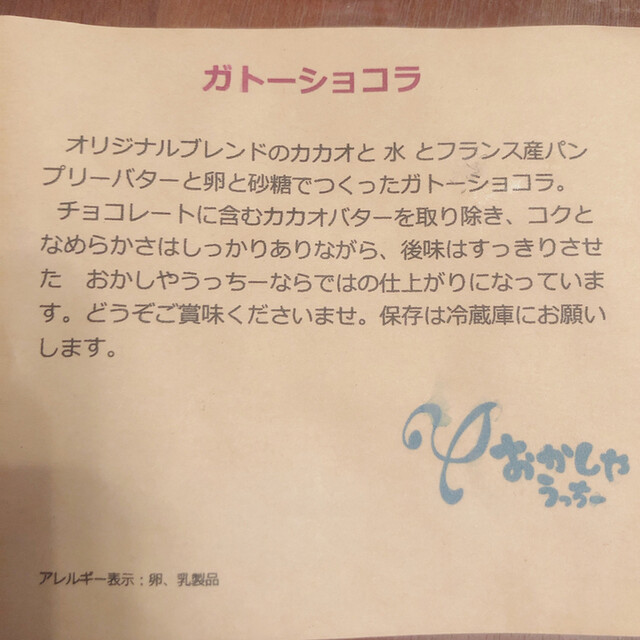 ガトーショコラ
オリジナルブレンドのカカオと 水 とフランス産パン
プリーバターと卵と砂糖でつくったガトーショコラ。
チョコレートに含むカカオバターを取り除き、コクと
なめらかさはしっかりありながら、後味はすっきりさせ
た　おかしやうっちーならではの仕上がりになっていま
す。どうぞご賞味くださいませ。保存は冷蔵庫にお願い
します。
おかしや
うっちー
アレルギー表示：卵、乳製品